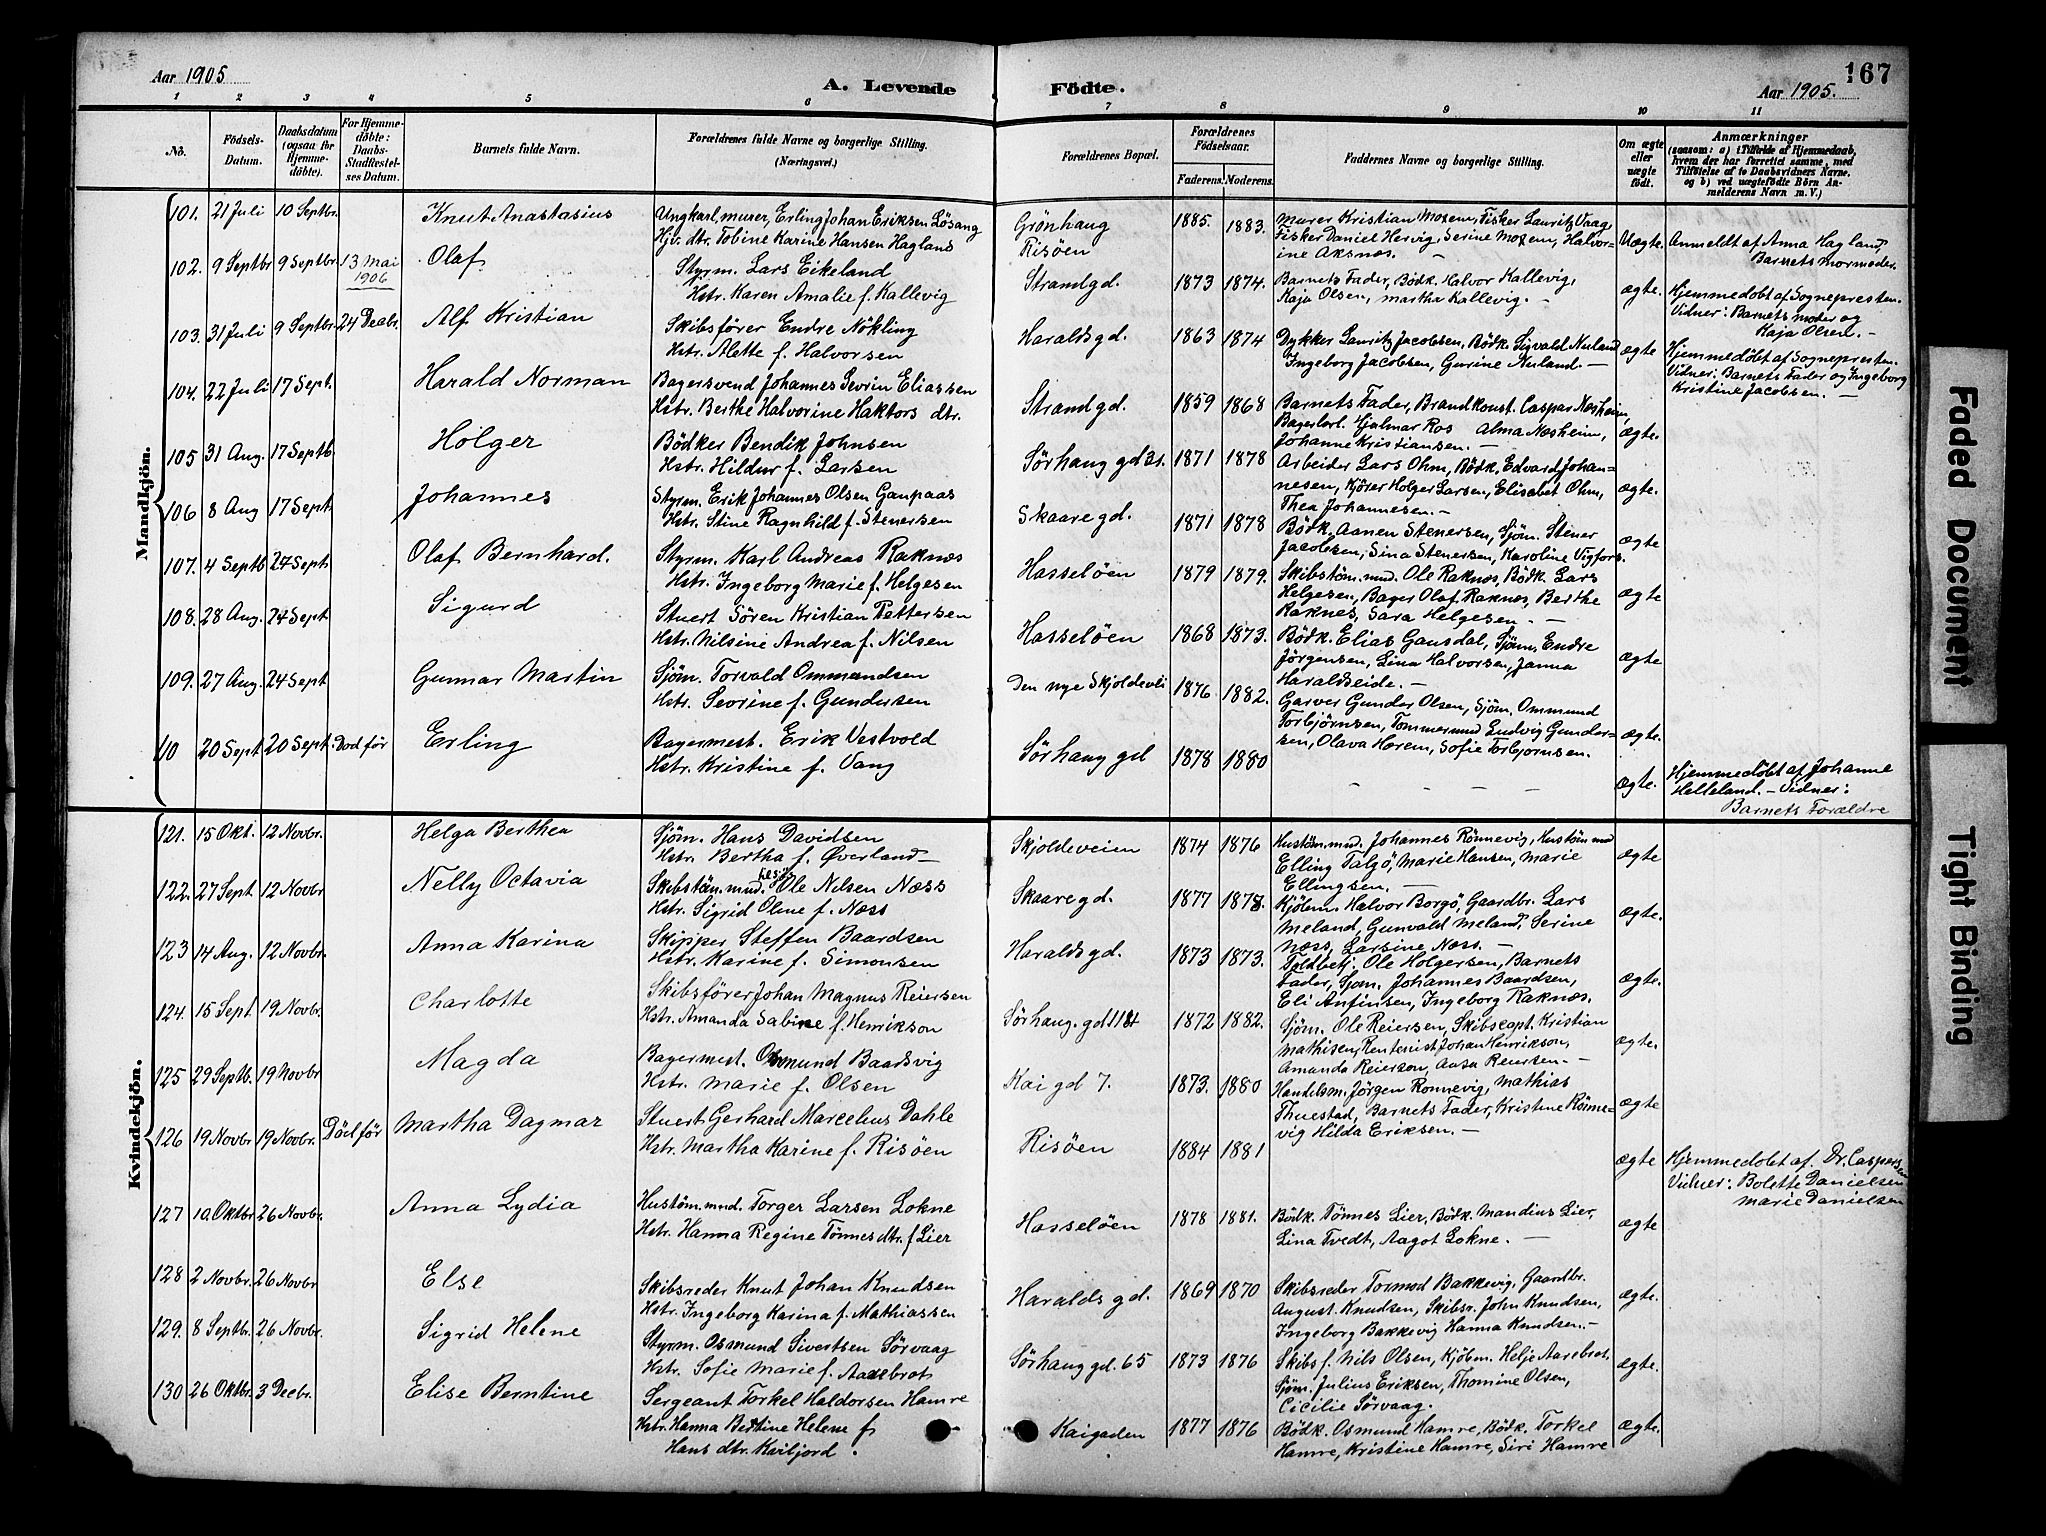 Aar 1905 A. Levende Födte. Aar 1905. 167
1 2 3 4 5 6 7 8 9 10 11
No.
Födsels-
Datum.
Daabsdatum
(ogsaa for
Hjemme-
döbte).
For Hjemme-
döbte:
Daabs-
Stadfestel-
ses Datum.
Barnets fulde Navn.
Forældrenes fulde Navne og borgerlige Stilling.
(Næringsvei.)
Forældrenes Bopæl.
Forældrenes
Födselsaar.
Faderens. Moderens.
Faddernes Navne og borgerlige Stilling.
Om ægte
eller
uægte
födt.
Anmærkninger
(saasom: a) i Tilfælde af Hjemmedaab,
hvem der har forrettet samme, med
Tilföielse af to Daabsvidners Navne,
og b) ved uægtefödte Börn An-
melderens Navn m. V.)
Mandkjön.
101. 21 Juli 10 Septbr. Knut Anastasius
Ungkarl, murer, Erling Johan Eriksen Lösang
Hjv. dtr. Tobine Karine Hansen Hagland
Grönhaug
Risöen
1885. 1883.
Murer Kristian Moxem, Fisker Lauritz Vaag,
Fisker Daniel Hervig, Serine Moxem, Halvor-
ine Aksnæs. -
Uægte. Anmeldt af Anna Hagland,
Barnets mormoder.
102. 9 Septbr 9 Septbr 13 Mai
1906
Olaf
Styrm. Lars Eikeland
Hstr. Karen Amalie f. Kallevig
Strandgd. 1873 1874.
Barnets Fader, Bödk. Halvor Kallevig,
Kaja Olsen, Martha Kallevig. -
ægte. Hjemmedöbt af Sognepresten.
Vidner: Barnets moder og
Kaja Olsen. -
103. 31 Juli 9 Septbr. 24 Decbr. Alf Kristian
Skibsförer Endre Nökling
Hstr. Alette f. Halvorsen
Haraldsgd. 1863 1874
Dykker Lauritz Jacobsen, Bödk. Sigvald Nuland
Ingeborg Jacobsen, Gurine Nuland. -
ægte Hjemmedöbt af Sognepresten.
Vidner: Barnets Fader og Ingeborg
Kristine Jacobsen. -
104. 22 Juli 17 Sept. Harald Norman
Bagersvend Johannes Sevrin Eliassen
Hstr. Berthe Halvorine Haktors dtr.
Strandgd. 1859 1868
Barnets Fader, Brandkonst. Caspar Næsheim,
Bagerlærl. Hjalmar Ros Alma Næsheim,
Johanne Kristiansen. -
ægte.
105 31 Aug. 17 Septb. Holger
Bödker Bendik Johnsen
Hstr. Hildur f. Larsen
Sörhaug gd 31. 1871 1878
Arbeider Lars Ohm, Bödk. Edvard Johan-
nesen, Kjörer Holger Larsen, Elisabet Ohm,
Thea Johannesen. -
ægte.
106 8 Aug 17 Sept. Johannes
Styrm. Erik Johannes Olsen Gaupaas
Hstr. Stine Ragnhild f. Stenersen
Skaaregd. 1871 1878
Bödk. Aanen Stenersen, Sjöm. Stener
Jacobsen, Sina Stenersen, Karoline Vigfors.
ægte
107. 4 Septb 24 Sept Olaf Bernhard.
Styrm. Karl Andreas Raknæs
Hstr. Ingeborg Marie f. Helgesen
Hasselöen 1879 1879.
Skibstöm.mnd. Ole Raknæs, Bödk. Lars
Helgesen, Bager Olaf Raknæs, Berthe
Raknes, Sara Helgesen. -
ægte
108. 28 Aug. 24 Sept Sigurd
Stuert Sören Kristian Pettersen
Hstr. Nilsine Andrea f. Nilsen
Hasselöen 1868 1873.
Bödk. Elias Gausdal, Sjöm. Endre
Jörgensen, Lina Halvorsen, Janna
Haraldseide. -
ægte
109. 27 Aug. 24 Sept Gunnar Martin
Sjöm. Torvald Ommundsen
Hstr. Sevrine f. Gundersen
Den nye Skjoldevei 1876 1882.
Garver Gunder Olsen, Sjöm. Ommund
Torbjörnsen, Tommermnd Ludvig Gunder-
sen, Olava Horem, Sofie Torbjornsen.
ægte.
10 20 Sept 20 Sept. Död før Erling
Bagermest. Erik Vestvold
Hstr. Kristine f. Vang
Sörhaug gd 1878 1880
- - - - -
ægte. Hjemmedöbt af Johanne
Helleland. - Vidner:
Barnets Forældre
Kvindekjön.
121. 15 Okt. 12 Novbr. Helga Berthea
Sjöm. Hans Davidsen
Hstr. Bertha f. Øverland -
Skjoldeveien 1874 1876
Hustöm.mnd. Johannes Rönnevig, Hustöm.mnd
Elling Talgö, Marie Hansen, Marie
Ellingsen. -
ægte
122. 27 Sept. 12 Novbr Nelly Octavia
Skibstöm.mnd. Ole Nilsen Næss
Hstr. Sigrid Oline f. Næss
Skaaregd. 1877 1878.
Kjöbm. Halvor Borgö, Gaardbr. Lars
Meland, Gunvald Meland, Serine
Næss, Larsine Næss. -
ægte.
123 14 Aug. 12 Novbr. Anna Karina
Skipper Steffen Baardsen
Hstr. Karine f. Simonsen
Haraldsgd. 1873 1873.
Toldbetj. Ole Holgersen, Barnets
Fader, Sjöm. Johannes Baardsen,
Eli Anfinsen, Ingeborg Raknæs.
ægte.
124. 15 Sept. 19 Novbr. Charlotte
Skibsförer Johan Magnus Reiersen
Hstr. Amanda Sabine f. Henrikson
Sörhaug. gd 1872 1882.
Sjöm. Ole Reiersen, Skibscapt. Kristian
Mathisen, Rentenist Johan Henrikson,
Amanda Reierson, Aasa Reiersen. -
ægte.
125 29 Septb. 19 Novbr Magda
Bagermest. Osmund Baardsvig
Hstr. Marie f. Olsen
Kai gd 7. 1873. 1880
Handelsm. Jörgen Ronnevig, Mathias
Thuestad, Barnets Fader, Kristine Rönne-
vig Hilda Eriksen. -
ægte
126 19 Novbr 19 Novbr. Död før Martha Dagmar
Stuert Gerhard Marcelius Dahle
Hstr. Martha Karine f. Risöen
Risöen 1884 1881
ægte Hjemmedöbt af Dr. Caspersen
Vidner: Bolette Danielsen
Marie Danielsen
127 10. Oktbr 26 Novbr. Anna Lydia
Hustöm.mnd. Torger Larsen Lokne
Hstr. Hanna Regine Tönnes dtr. f Lier
Hasselöen 1878 1881.
Bödk. Tönnes Lier, Bödk. Mandius Lier,
Lina Tvedt, Aagot Lokne. -
ægte
128 2 Novbr. 26 Novbr Else
Skibsreder Knut Johan Knudsen
Hstr. Ingeborg Karina f. Mathiassen
Haraldsgd. 1869 1870
Skibsreder Tormod Bakkevig, Gaardbr.
August. Knudsen, Skibsr. John Knudsen,
Ingeborg Bakkevig Hanna Knudsen. -
ægte.
129. 8 Septbr. 26 Novbr. Sigrid Helene
Styrm. Osmund Sivertsen Sörvaag
Hstr. Sofie Marie f. Aarebrot
Sörhaug gd. 65 1873 1876
Skibsf. Nils Olsen, Kjöbm. Helje Aarebrot,
Sjöm. Julius Eriksen, Thomine Olsen,
Cicilie Sörvaag.
ægte.
130 26 Oktbr. 3 Decbr. Elise Berntine
Sergeant Torkel Haldorsen Hamre
Hstr. Hanna Bertine Helene f
Hans dtr. Kviljord.
Kaigaden 1877 1876
Bödk. Osmund Hamre, Bödk. Torkel
Hamre, Kristine Hamre, Siri Hamre
ægte.
Faded Document
Tight Binding